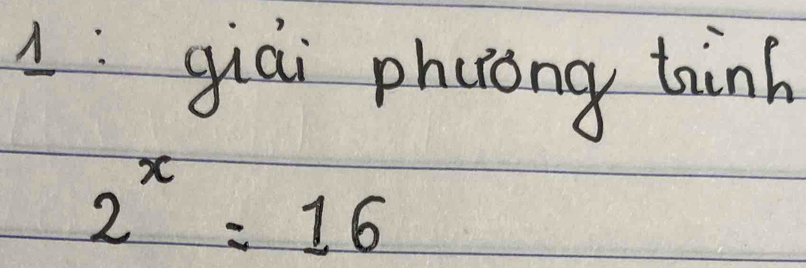 1 : giải phương trình
2^x = 16